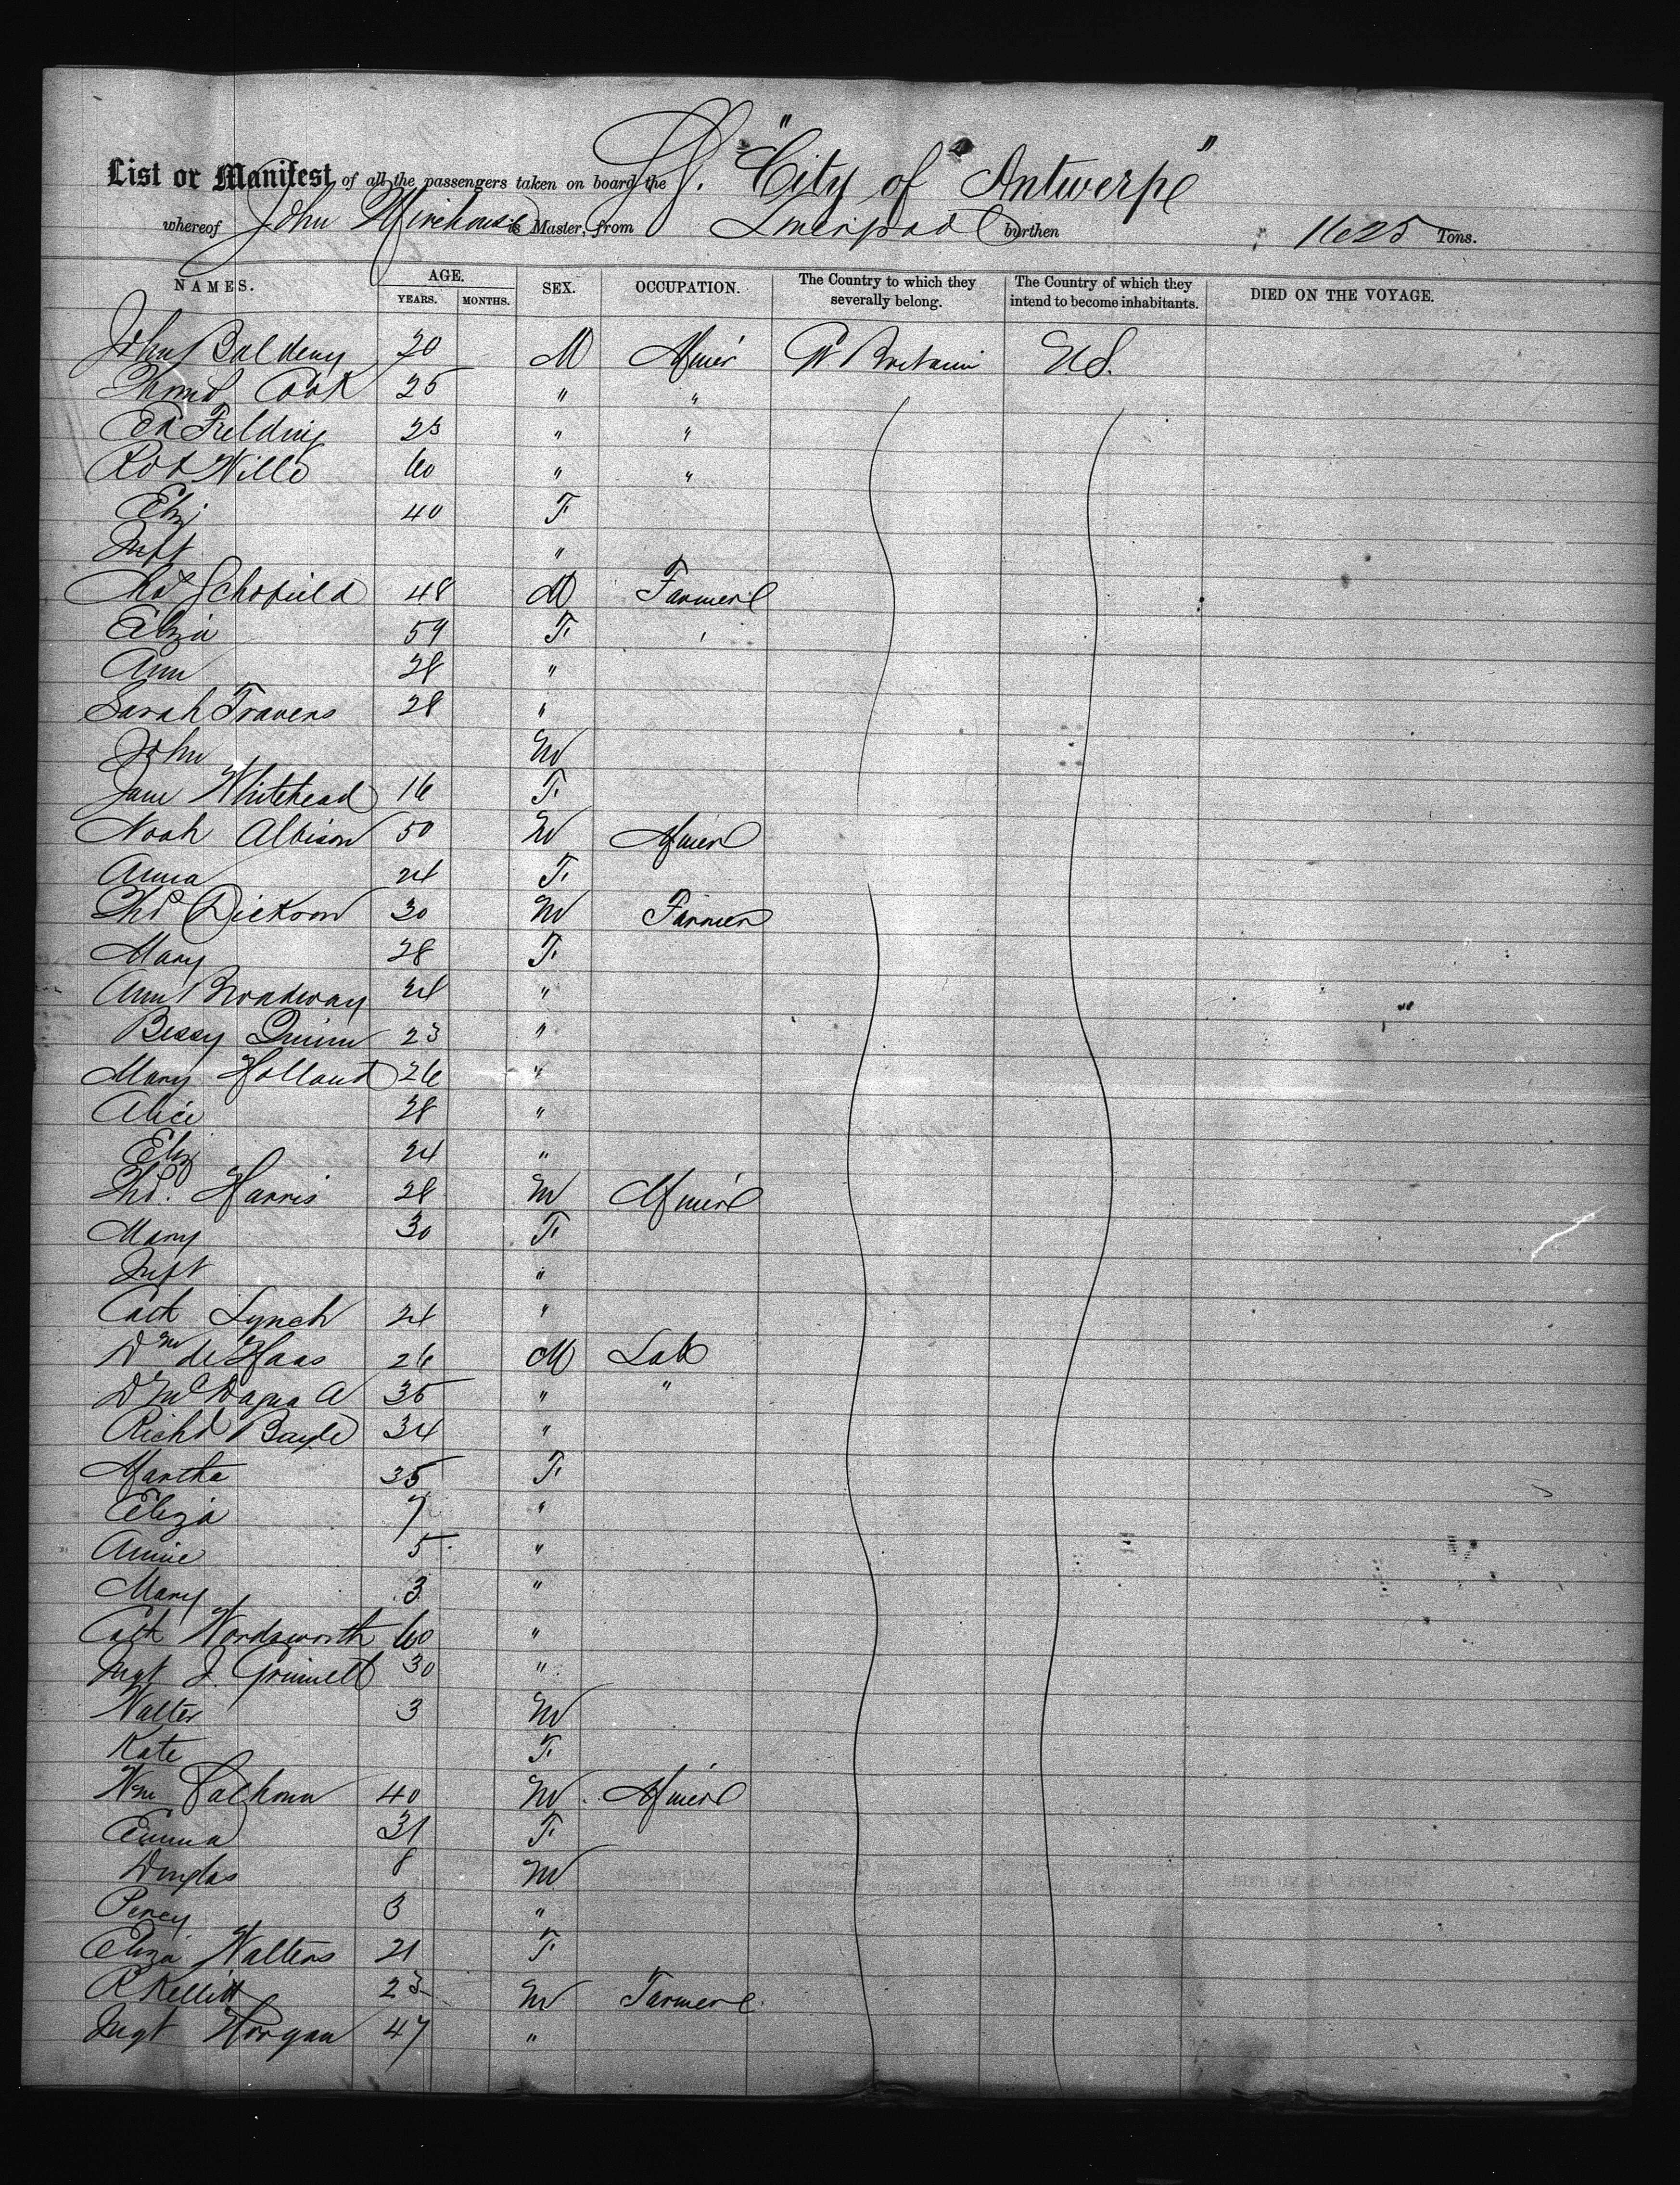 List or Manifest of all the passengers taken on board the SS. "City of Antwerp"
whereof John Mirehouse is Master, from Liverpool burthen 1625 Tons.
NAMES. AGE. YEARS. MONTHS. SEX. OCCUPATION. The Country to which they severally belong. The Country of which they intend to become inhabitants. DIED ON THE VOYAGE.
John 20 M Miner Gt. Britain U.S.
Thomas Cook 25 " "
Ed Fielding 23 " "
Robt Wills 60 " "
Eliz 40 F
Inft "
Schofield 48 M Farmer
Eliza 59 F
Ann 28 "
Sarah Travers 28 "
John M
Jane Whitehead 16 F
Noah Albison 50 M Miner
Anna 24 F
Thos Dickson 30 M Farmer
Mary 28 F
Ann Broadway 24 "
Bessy Quinn 23 "
Mary Holland 26 "
Alice 28 "
Eliz 24 "
Thos. Harris 28 M Miner
Mary 30 F
Inft "
Cath Lynch 24 "
Wm de Haas 26 M Lab
35 " "
Richd Bayle 34 "
Martha 35 F
Eliza 7 "
Annie 5 "
Mary 3 "
Cath Wordsworth 60 "
Mgt J. Grinnell 30 "
Walter 3 M
Kate F
Wm Calhoun 40 M Miner
Emma 31 F
Douglas 8 M
Percy 3 "
Eliza Walters 21 F
R Kellitt 23 M Farmer
Mgt Horgan 47 "